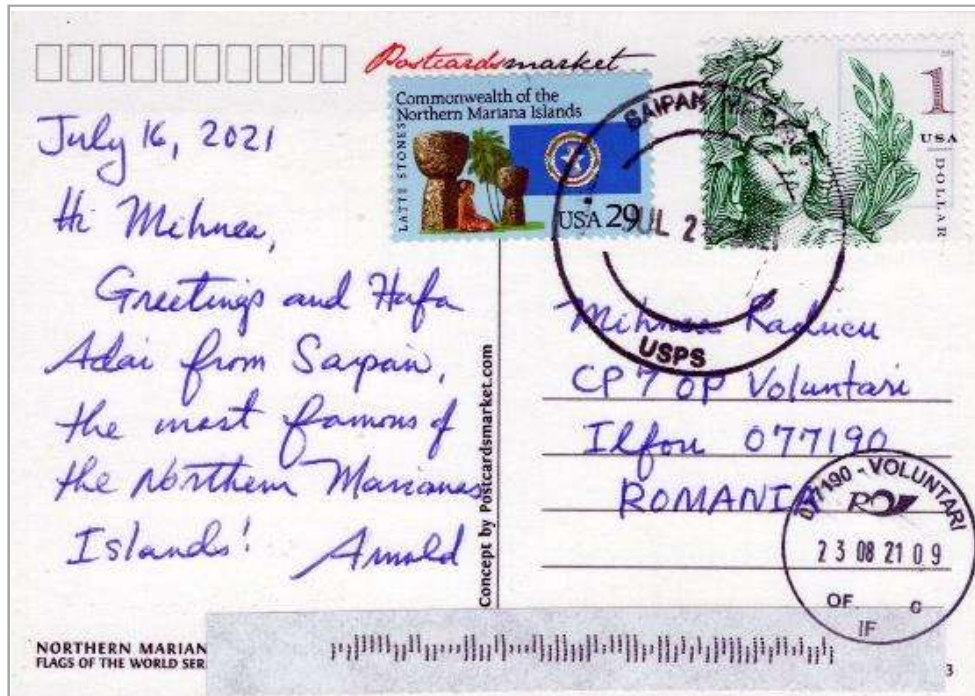 Postcardsmarket
Commonwealth of the
Northern Mariana Islands
LATTE STONES
USA 29
1
USA
DOLLAR
SAIPAN
JUL 2
USPS
July 16, 2021
Hi Mihnea,
Greetings and Hafa
Adai from Saipan,
the most famous of
the Northern Marianas
Islands!
Arnold
Concept by Postcardsmarket.com
Mihnea Raducu
CP 7 OP Voluntari
Ilfov 077190
ROMANIA
077190 - VOLUNTARI
23 08 21 09
OF. 0
IF
NORTHERN MARIAN
FLAGS OF THE WORLD SER
3